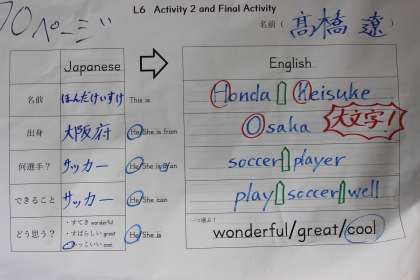 70ページ
L6 Activity 2 and Final Activity
名前 ( 高橋 遼 )
Japanese
English
名前
ほんだけいすけ
This is
Honda Keisuke
出身
大阪府
He/She is from
Osaka
大文字!
何選手?
サッカー
He/She is a/an
soccer player
できること
サッカー
He/She can
play soccer well
どう思う?
・すてき wonderful
・すばらしい great
・かっこいい cool
He/She is
wonderful/great/cool